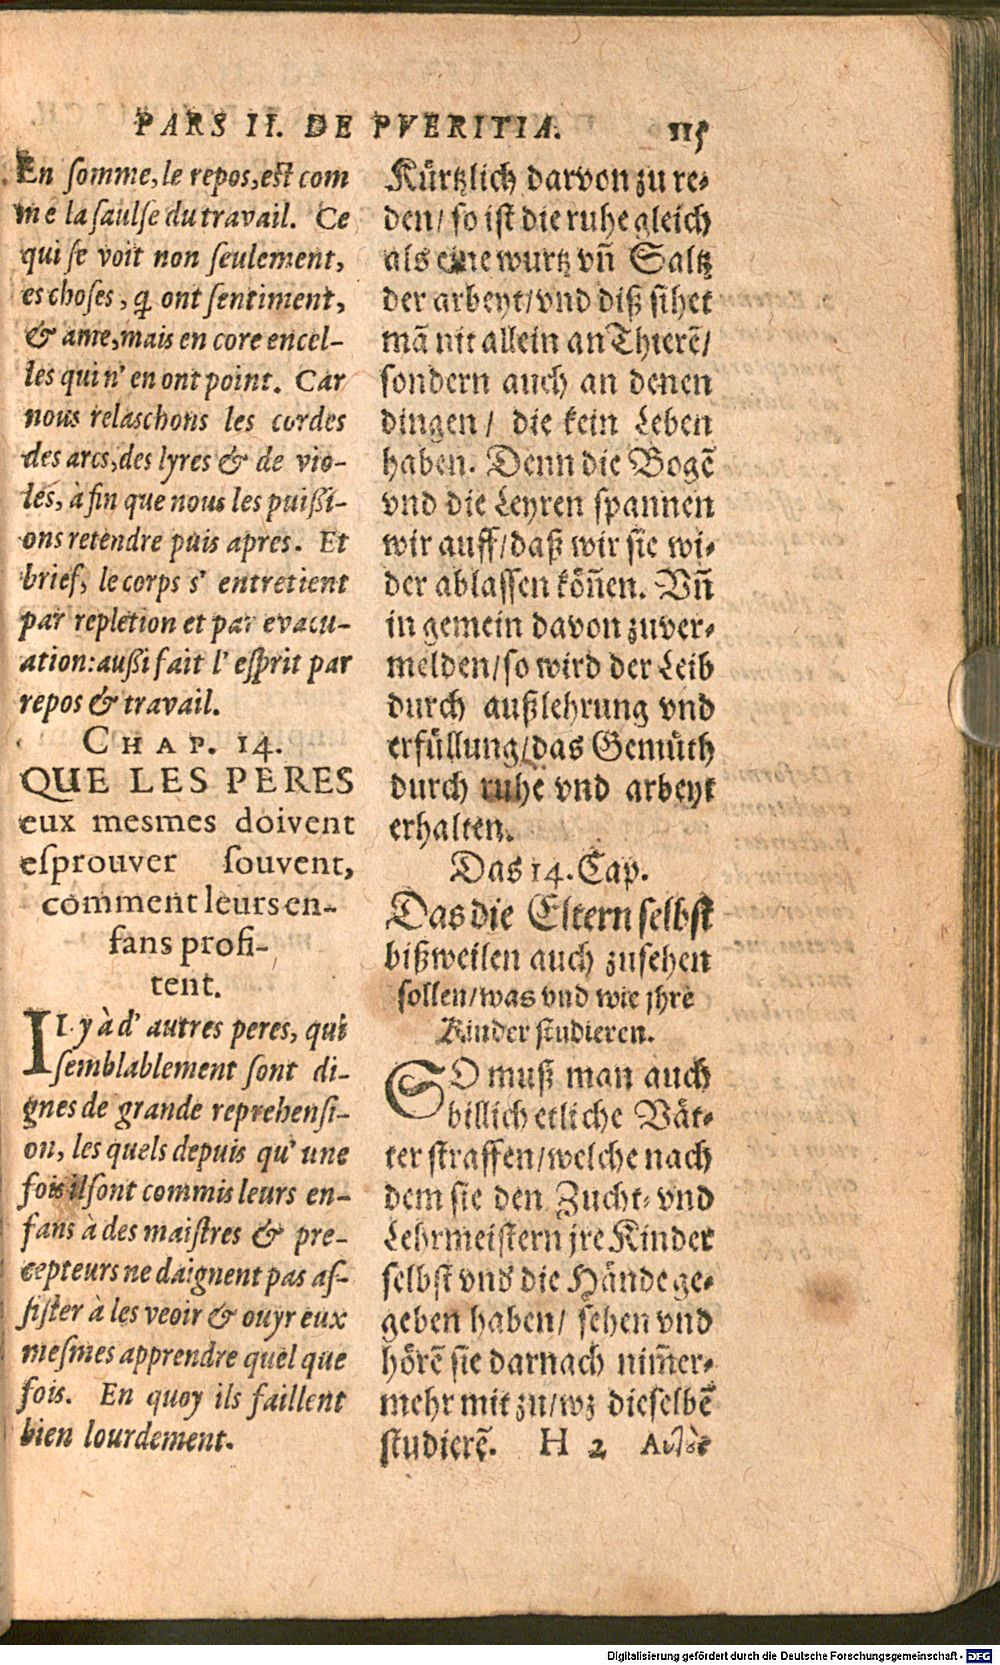 PARS II. DE PVERITIA. 115
En somme, le repos, est com
me la saulse du travail. Ce
qui se voit non seulement,
es choses, q̃ ont sentiment,
& ame, mais en core encel-
les qui n' en ont point. Car
nous relaschons les cordes
des arcs, des lyres & de vio-
les, à fin que nous les puißi-
ons retendre puis apres. Et
brief, le corps s' entretient
par repletion et par evacu-
ation: außi fait l' esprit par
repos & travail.
CHAP. 14.
QUE LES PERES
eux mesmes doivent
esprouver souvent,
comment leurs en-
fans profi-
tent.
IL y à d' autres peres, qui
semblablement sont di-
gnes de grande reprehensi-
on, les quels depuis qu' une
fois ilsont commis leurs en-
fans à des maistres & pre-
cepteurs ne daignent pas as-
sister à les veoir & ouyr eux
mesmes apprendre quel que
fois. En quoy ils faillent
bien lourdement.
Kürtzlich darvon zu re-
den/ so ist die ruhe gleich
als eine wurtz vñ Saltz
der arbeyt/ vnd diß sihet
mā nit allein an Thierē/
sondern auch an denen
dingen/ die kein Leben
haben. Denn die Bogē
vnd die Leyren spannen
wir auff/ daß wir sie wi-
der ablassen köñen. Vñ
in gemein davon zuver-
melden/ so wird der Leib
durch außlehrung vnd
erfüllung/ das Gemüth
durch ruhe vnd arbeyt
erhalten.
Das 14. Cap.
Das die Eltern selbst
bißweilen auch zusehen
sollen/ was vnd wie jhre
Kinder studieren.
SO muß man auch
billich etliche Vät-
ter straffen/ welche nach
dem sie den Zucht- vnd
Lehrmeistern jre Kinder
selbst vnd die Hände ge-
geben haben/ sehen vnd
hörē sie darnach nim̃er-
mehr mit zu/ wz dieselbē
studierē. H 2